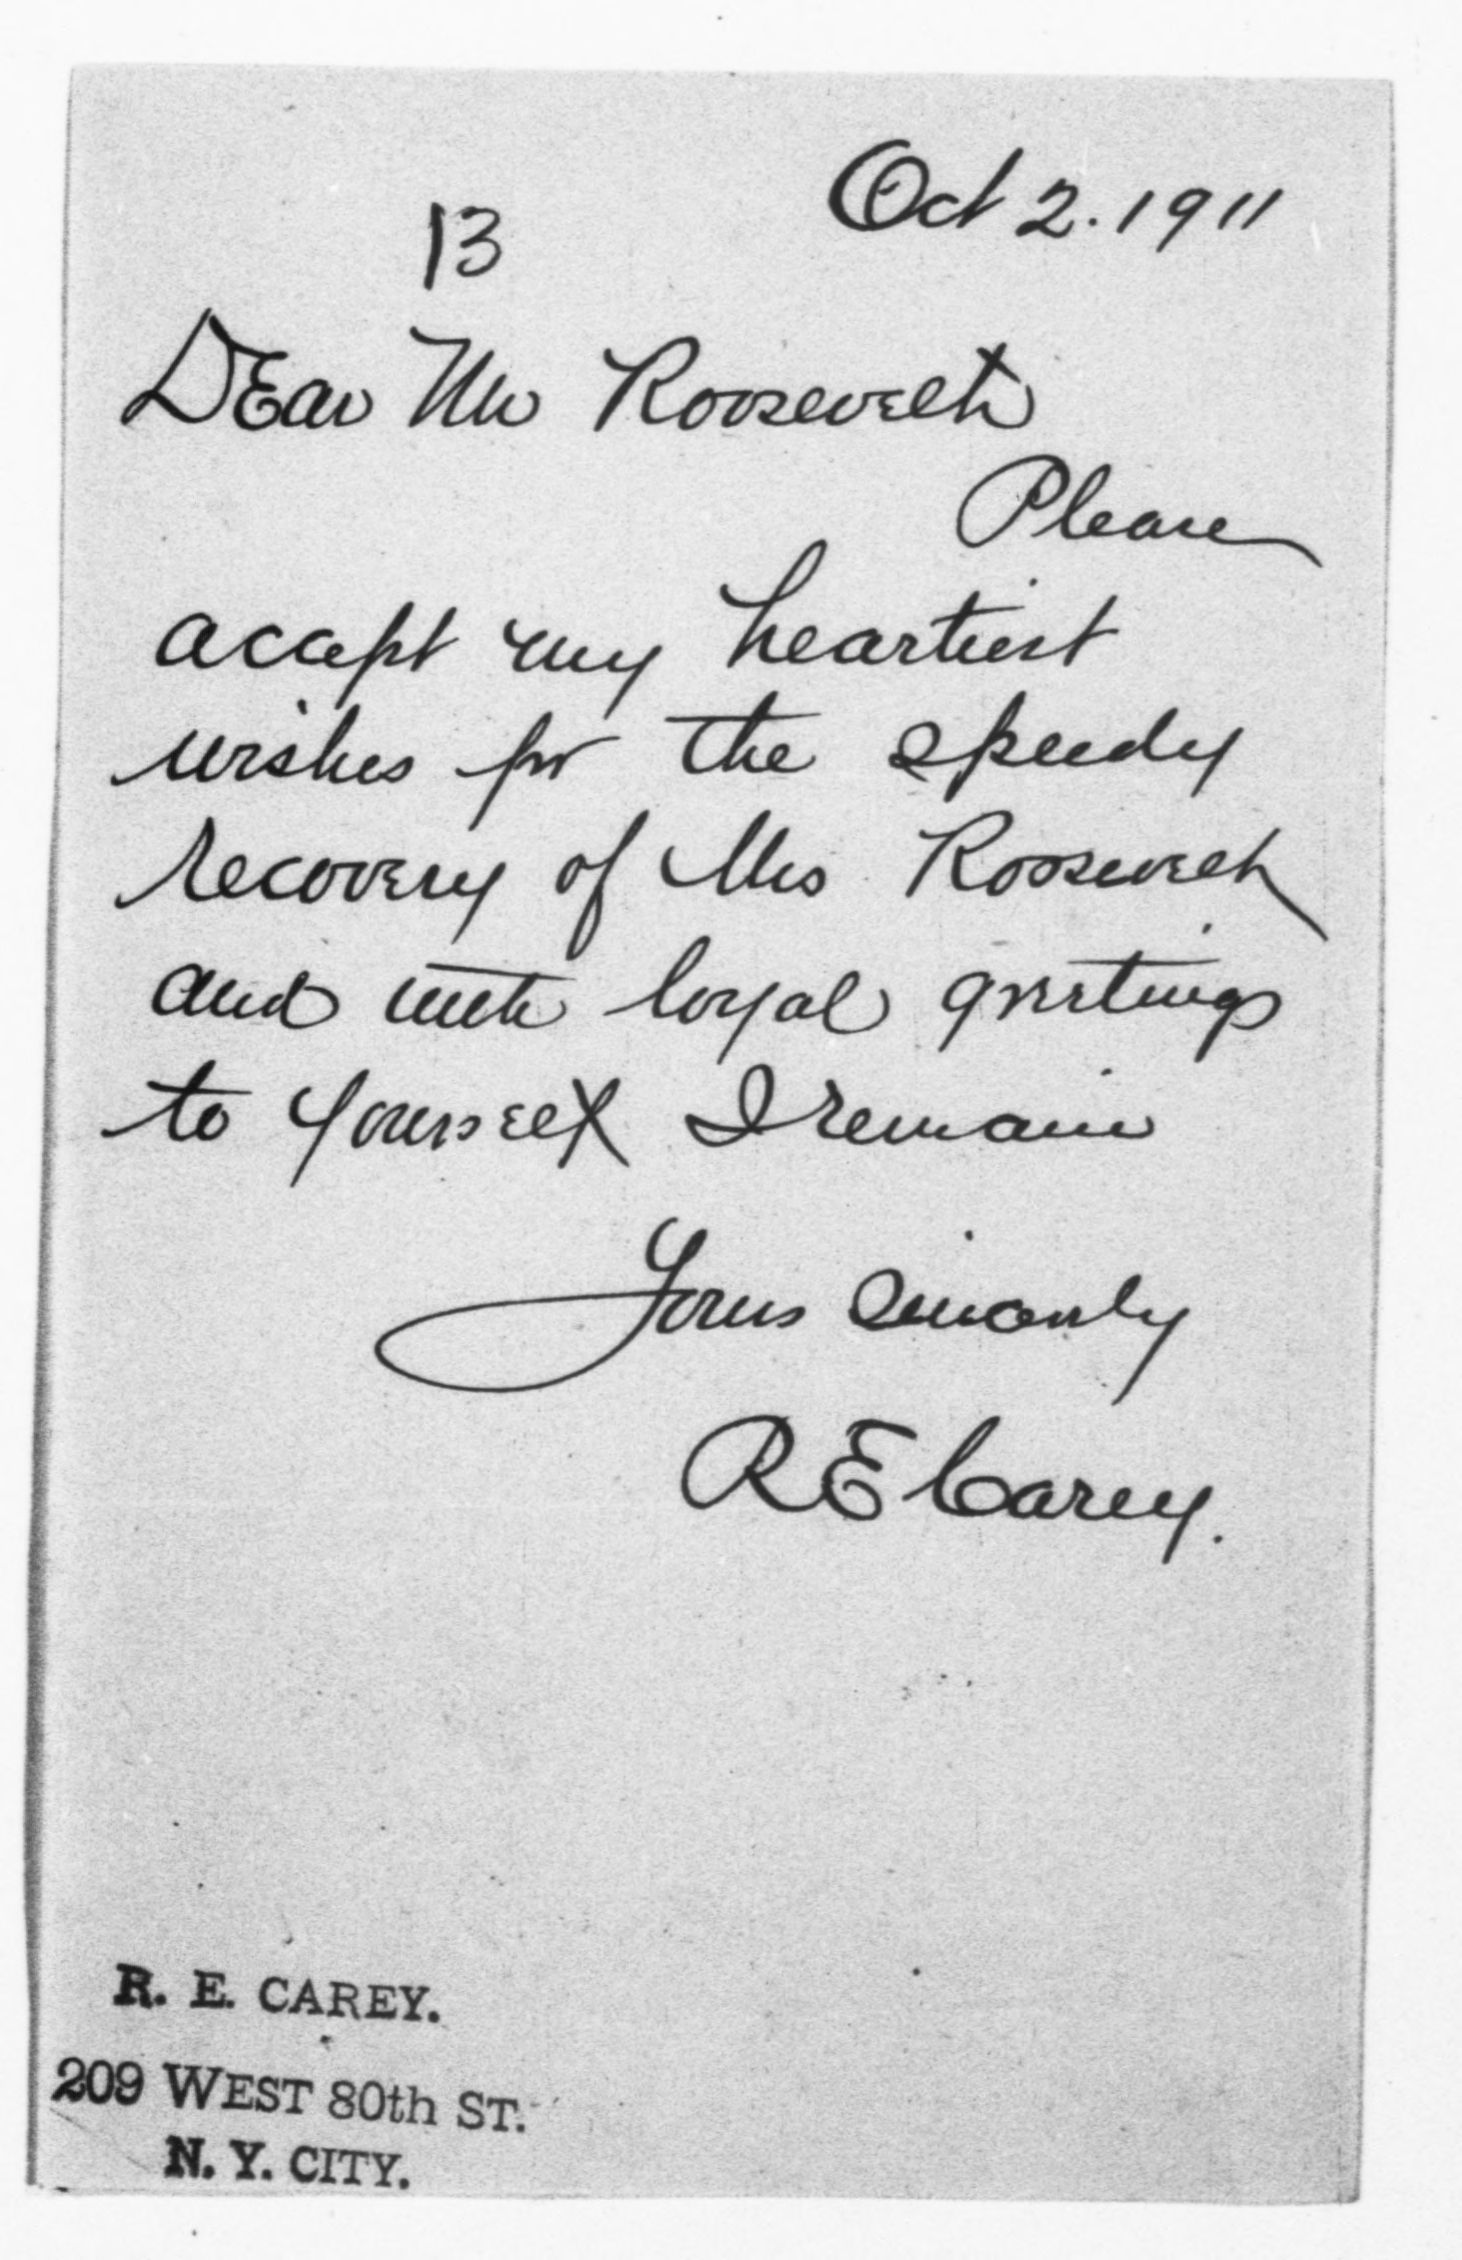 Oct 2. 1911
13
Dear Mr Roosevelt
Please
accept my heartiest
wishes for the speedy
recovery of Mrs Roosevelt
and with loyal greetings
to yourself I remain
Yours Sincerely
R E Carey.
R. E. CAREY.
209 WEST 80th ST.
N. Y. CITY.